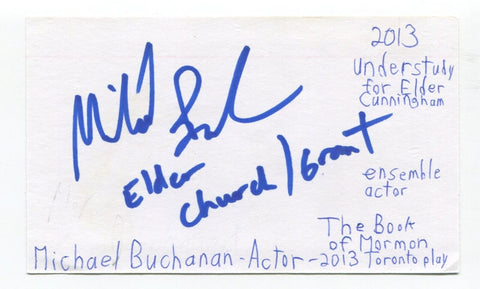 2013
Understudy
for Elder
Cunningham
Elder
Church/Grant
ensemble
actor
The Book
of Mormon
Michael Buchanan-Actor-2013 Toronto play